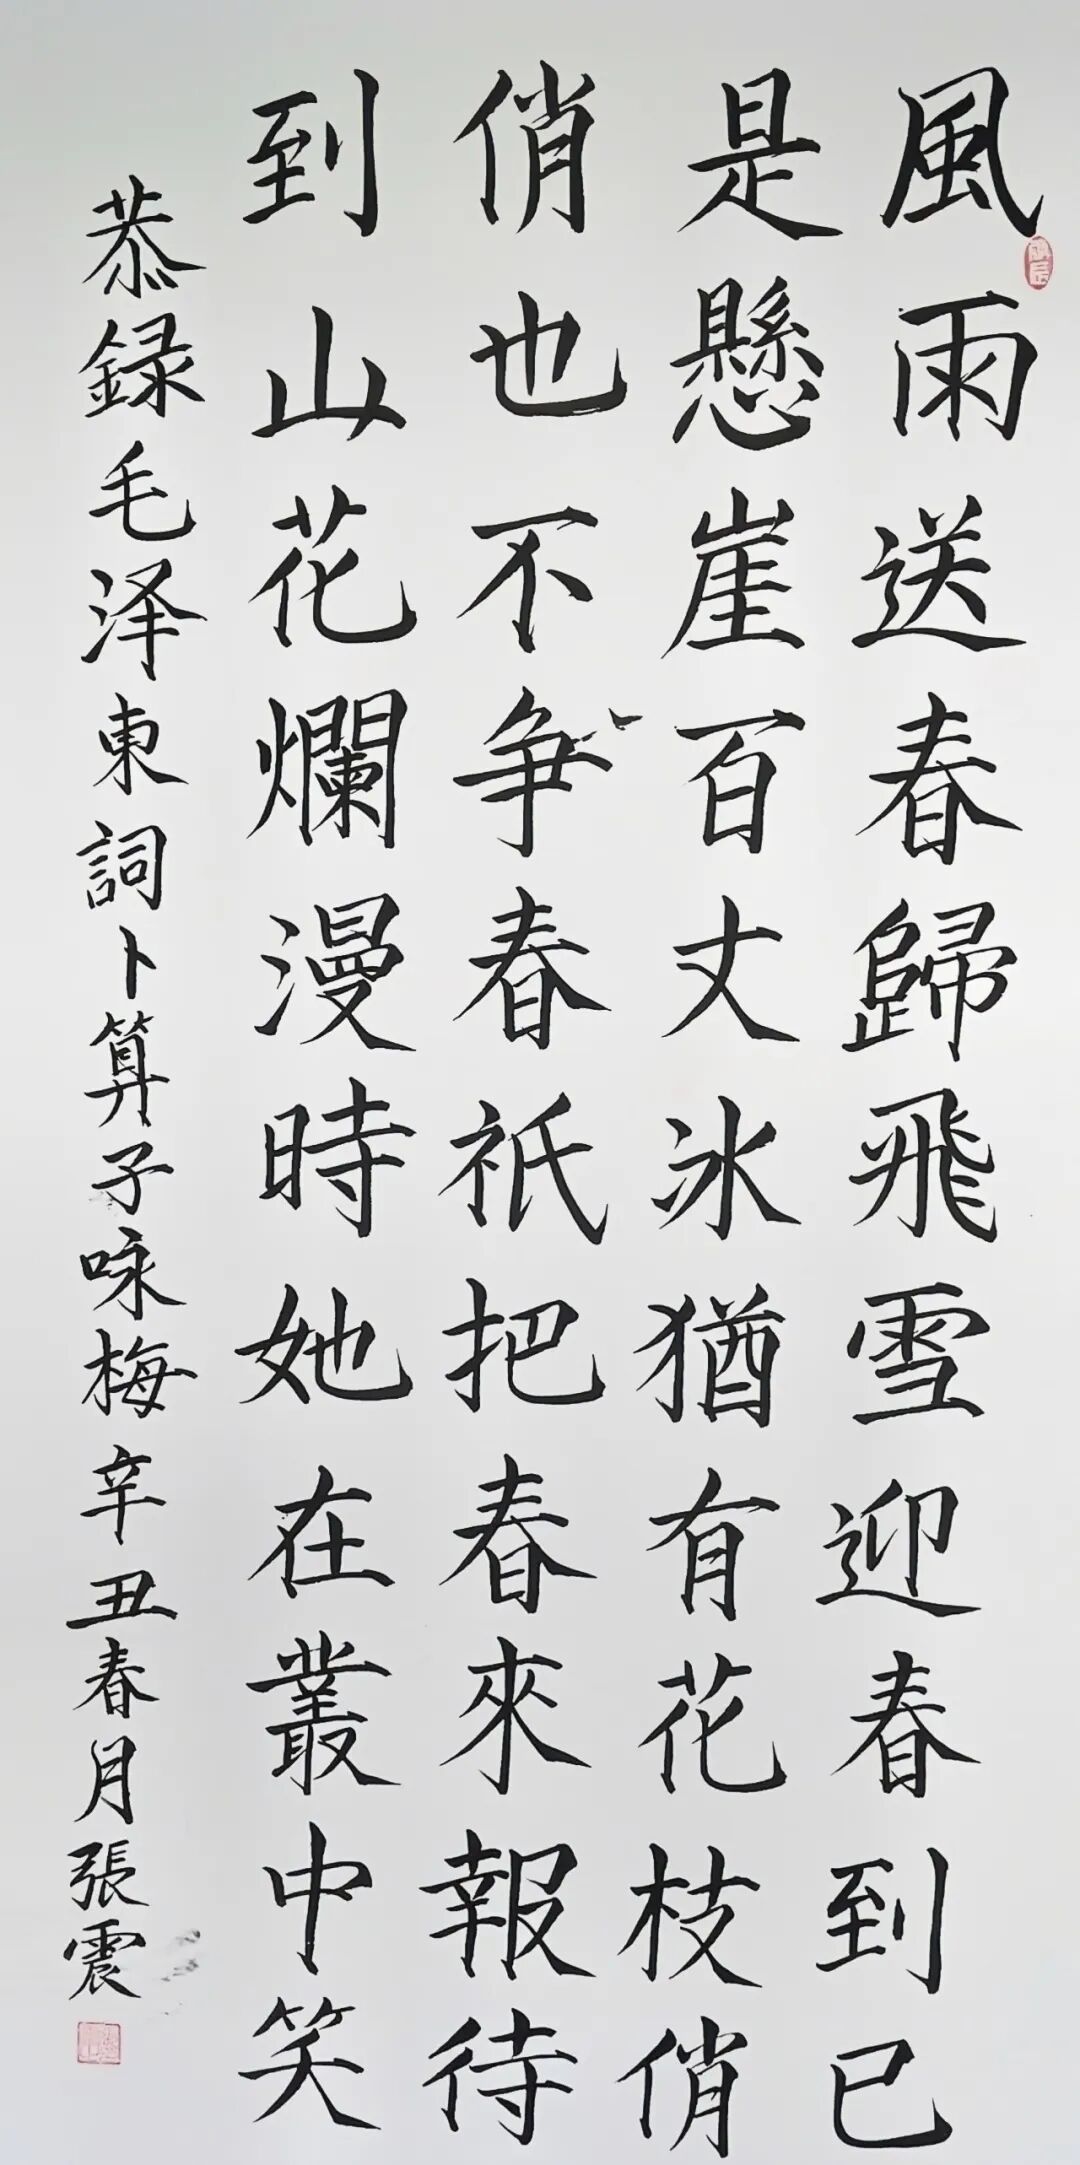 風雨送春歸飛雪迎春到已
是懸崖百丈冰猶有花枝俏
俏也不争春祇把春來報待
到山花爛漫時她在叢中笑
恭録毛泽東詞卜算子咏梅辛丑春月張震